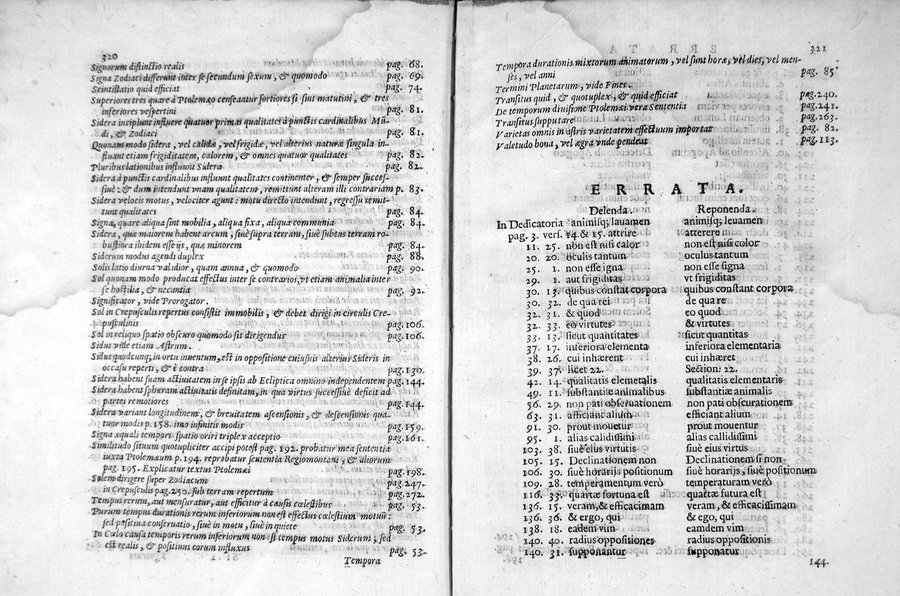 320
Signorum distinctio realis pag. 68.
Signa Zodiaci differunt inter se secundum sexum, & quomodo pag. 69.
Scintillatio quid efficiat pag. 74.
Superiores tres quare à Ptolemæo censeantur fortiores si sint matutini, & tres
inferiores vespertini pag. 81.
Sidera incipiunt influere quatuor primas qualitates à punctis cardinalibus Mu-
di, & Zodiaci pag. 81.
Quonam modo sidera, vel calida, vel frigida, vel alterius naturæ singula in-
fluant etiam frigiditatem, calorem, & omnes quatuor qualitates pag. 82.
Pluribus lationibus influunt Sidera pag. 82.
Sidera à punctis cardinalibus influunt qualitates continenter, & semper succes-
siuè: & dum intendunt vnam qualitatem, remittunt alteram illi contrariam p. 83.
Sidera velocis motus, velociter agunt: motu directo intendunt, regressu remit-
tunt qualitates pag. 84.
Signa, quare aliqua sint mobilia, aliqua fixa, aliqua communia pag. 84.
Sidera, quæ maiorem habent arcum, siuè supra terram, siuè subtus terram ro-
bustiora ibidem esse ijs, quæ minorem pag. 84.
Siderum modus agendi duplex pag. 88.
Solis latio diurna validior, quam annua, & quomodo pag. 90.
Sol quonam modo producat effectus inter se contrarios, vt etiam animalia inter
se hostilia, & necantia pag. 92.
Significator, vide Prorogator.
Sol in Crepusculis repertus consistit immobilis, & debet dirigi in circulis Cre-
pusculinis pag. 106.
Sol in reliquo spatio obscuro quomodo sit dirigendus pag. 106.
Sidus vide etiam Astrum.
Sidus quodcunq; in ortu inuentum, est in oppositione cuiusuis alterius Sideris in
occasu reperti, & è contra pag. 130.
Sidera habent suam actiuitatem in se ipsis ab Ecliptica omnino independentem pag. 144.
Sidera habent spheram actiuitatis definitam, in qua virtus successiuè deficit ad
partes remotiores pag. 144.
Sidera variant longitudinem, & breuitatem ascensionis, & descensionis qua-
tuor modis p. 158. imo infinitis modis pag. 159.
Signa æquali tempori spatio oriri triplex acceptio pag. 161.
Similitudo situum quotupliciter accipi potest pag. 192. probatur mea sententia
iuxta Ptolemæum p. 194. reprobatur sententia Regiomontani, & aliorum
pag. 195. Explicatur textus Ptolemæi pag. 198.
Solem dirigere super Zodiacum pag. 247.
in Crepusculis pag. 250. sub terram repertum pag. 272.
Tempus rerum, aut mensuratur, aut efficitur à causis cœlestibus pag. 53.
Purum tempus durationis rerum inferiorum non est effectus cœlestium motuũ:
sed positiua conseruatio, siuè in motu, siuè in quiete pag. 53.
In Cœlo causa temporis rerum inferiorum non est tempus motus Siderum; sed
est realis, & positiuus eorum influxus pag. 53.
Tempora
321
Tempora durationis mixtorum animatorum, vel sunt horæ, vel dies, vel men-
ses, vel anni pag. 85
Termini Planetarum, vide Fines.
Transitus quid, & quotuplex, & quid efficiat pag. 240.
De temporum diuisione Ptolemæi vera Sententia pag. 241.
Transitus supputare pag. 263.
Varietas omnis in astris varietatem effectuum importat pag. 82.
Valetudo bona, vel ægra vnde pendeat pag. 113.
ERRATA.
Delenda. Reponenda.
In Dedicatoria animisq; lauamen animisq; leuamen
pag. 3. vers. 14. & 15. attrire atterere
11. 25. non est nisi calor non est nisi color
20. 20. oculis tantum oculus tantum
25. 1. non esse igna non esse signa
29. 1. aut frigiditas vt frigiditas
30. 13. quibus constat corpora quibus constant corpora
30. 32. de qua rei de qua re
32. 31. & quod eo quod
32. 33. eo virtutes & virtutes
33. 13. sicut quantitates sicut quantitas
37. 17. inferiora elementa inferiora elementaria
38. 26. cui inhærent cui inhæret
39. 37. licet 22. Section: 22.
42. 14. qualitatis elemetalis qualitatis elementaris
49. 11. substantiæ animalibus substantiæ animalis
56. 29. non pati obseruationem non pati obscurationem
63. 31. afficiant alium efficiant alium
91. 30. prout mouetur prout mouentur
95. 1. alias calidissimi alias callidissimi
103. 38. siuè eius virtutis siuè eius virtus
105. 15. Declinationem non Declinationem si non
106. 30. siuè horarijs positionum siuè horarijs, siuè positionum
109. 28. temperamentum verò temperaturam verò
116. 33. quartæ fortuna est quartæ futura est
136. 15. veram, & efficacimam veram, & efficacissimam
136. 36. & ergo, qui & ego, qui
138. 18. eadem vim eamdem vim
140. 40. radius oppositiones radius oppositionis
140. 31. supponantur supponatur
144.